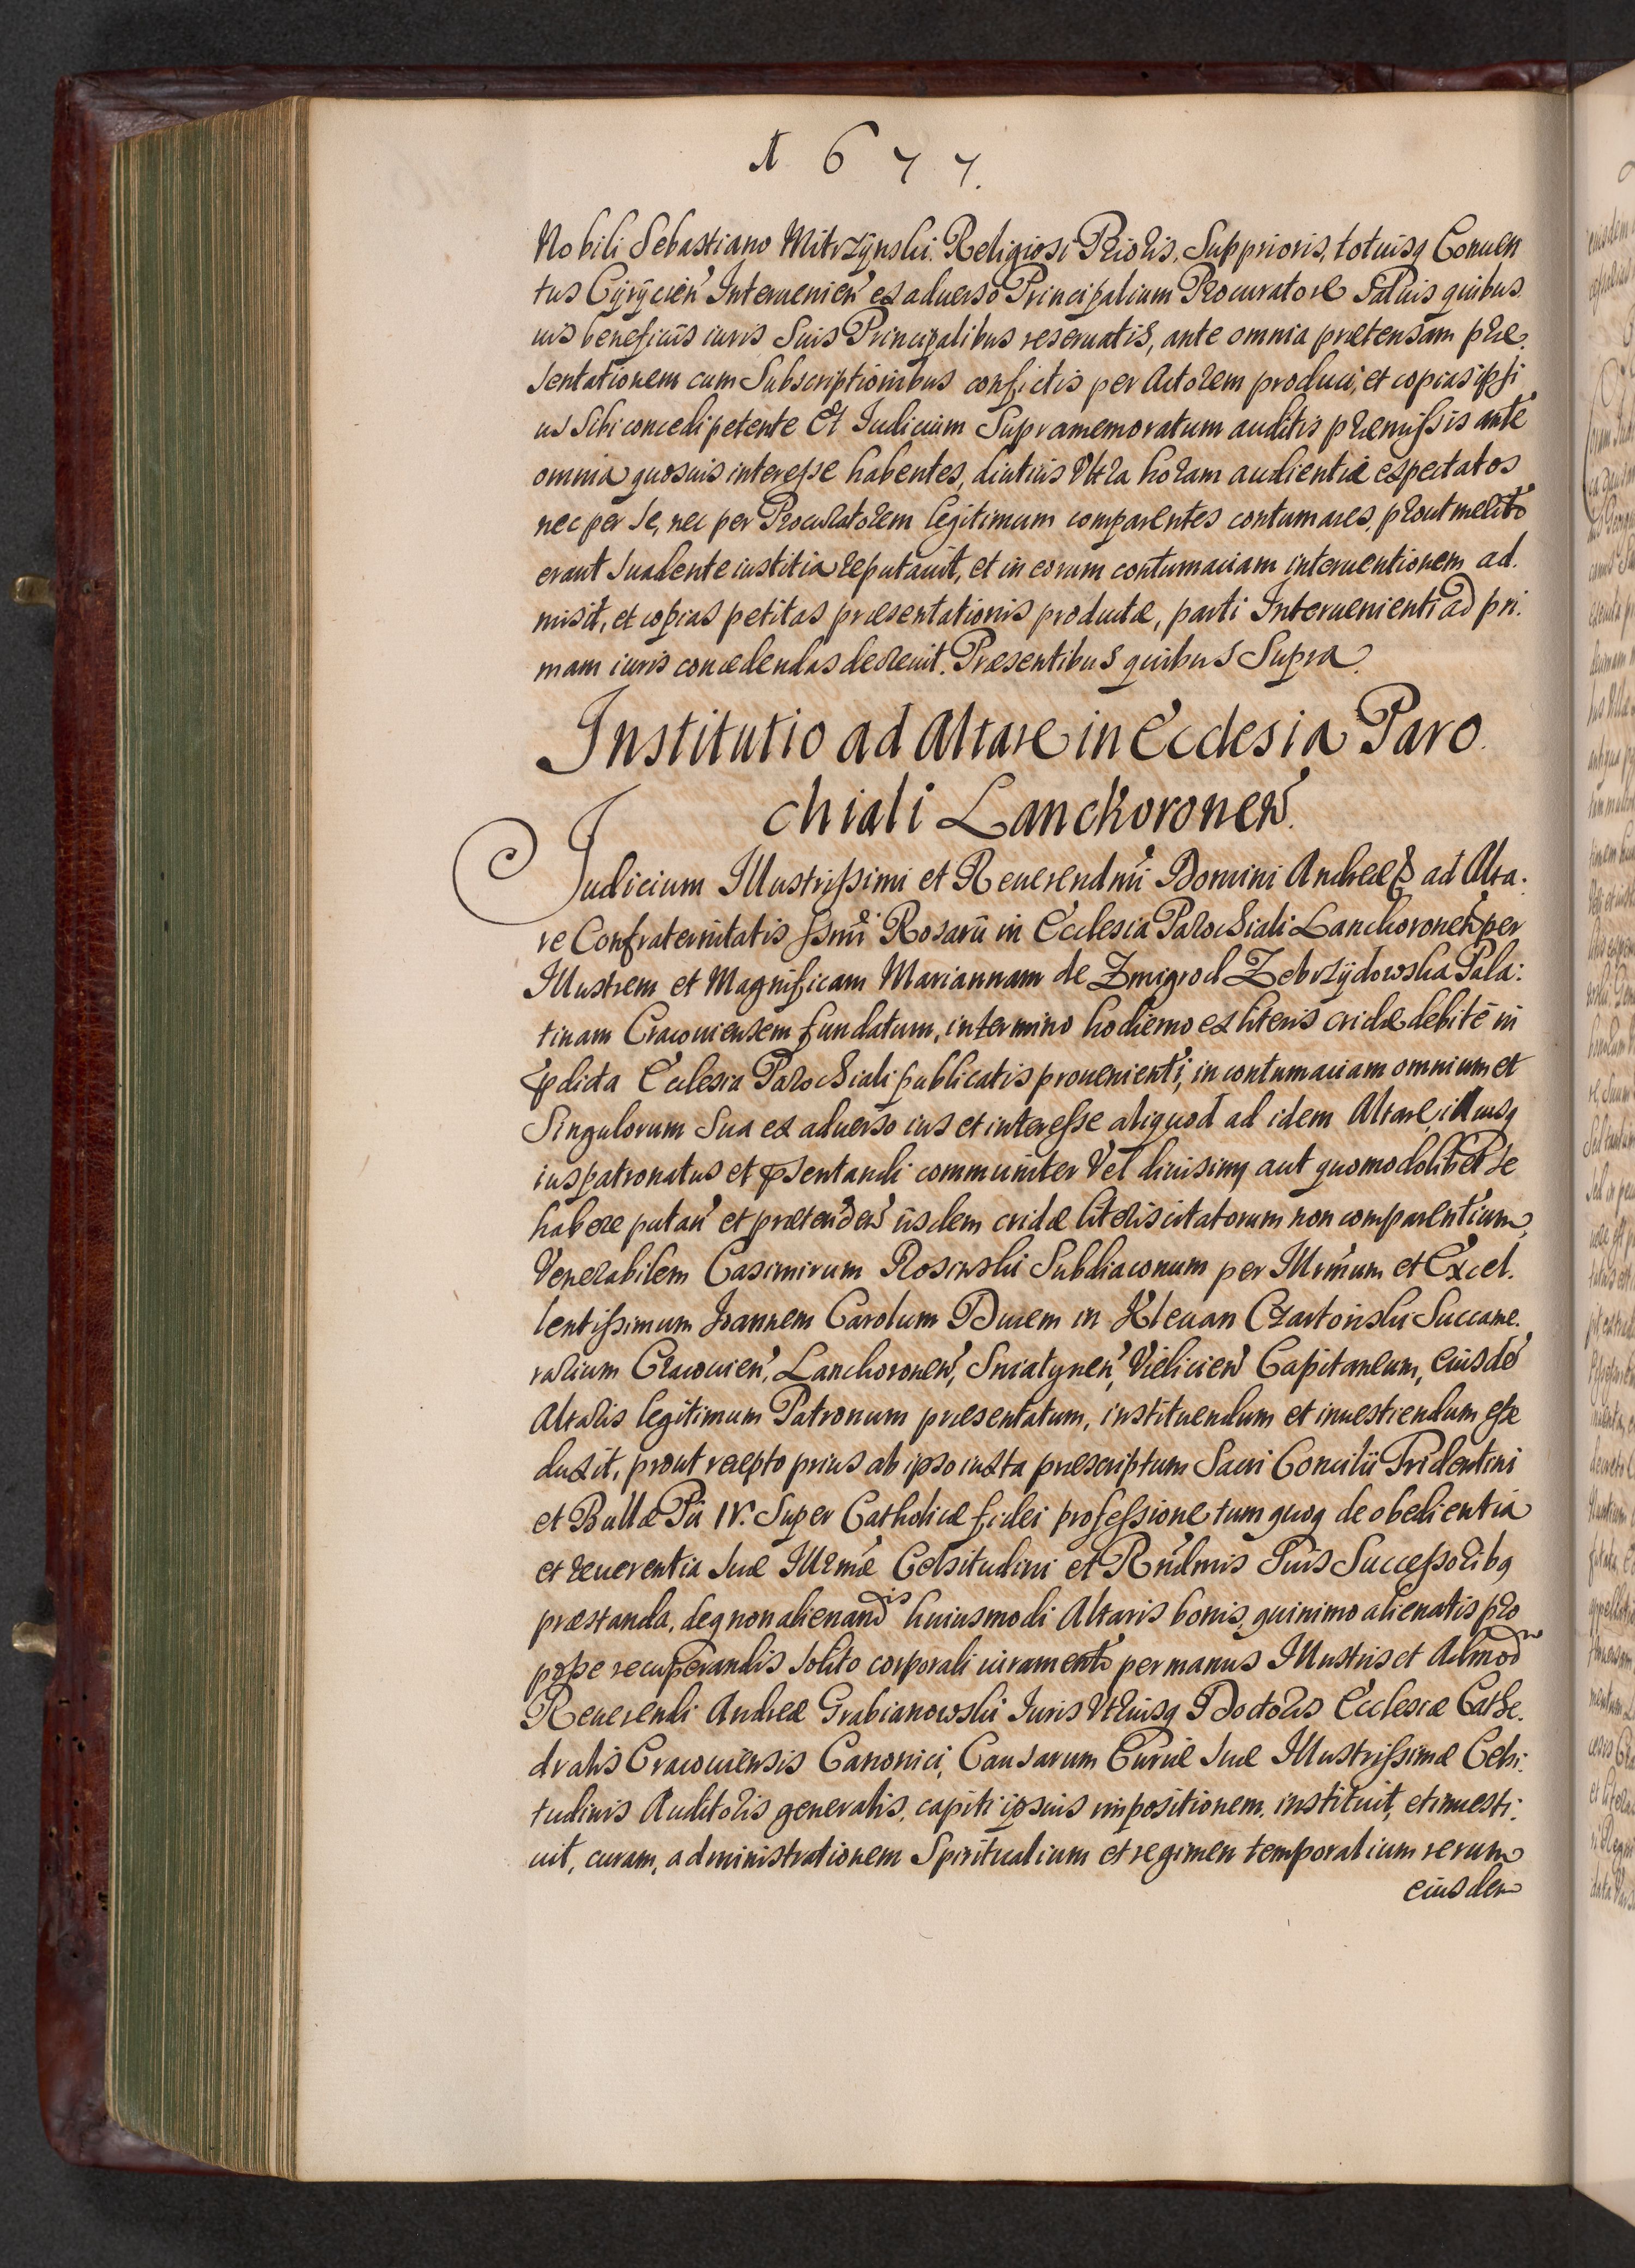 1 6 7 7.
Nobili Sebastiano Mitrzÿnski. Religiosi Prioris, Supprioris, totiusq Conuen
tus Cÿrÿcień Interuenień ex aduerso Principalium Procuratore Saluis quibus
uis beneficiis iuris Suis Principalibus reseruatis, ante omnia prætensam præ.
sentationem cum Subscriptionibus confictis per Actorem produci, et copias ipsi
us Sibi concedi petente Et Iudicium Supramemoratum auditis præmissis ante
omnia quosuis interesse habentes, diutius Vltra horam audientiæ expectatos
nec per se, nec per Procuratorem legitimum comparentes contumaces, prout merito
erant suadente iustitia reputauit, et in eorum contumaciam interuentionem ad.
misit, et copias petitas præsentationis productæ, parti Interuenienti ad pri.
mam iuris concedendas decreuit. Præsentibus quibus Supra.
Institutio ad Altare in Ecclesia Paro.
chiali Lanckoroneń.
Iudicium Illustrissimi et Reuerendmi Domini Andreæ ad Alta.
re Confraternitatis Ssmi Rosarii in Ecclesia Parochiali Lanckoroneń per
Illustrem et Magnificam Mariannam de Zmigrod Zebrzÿdowska Pala:
tinam Cracouiensem fundatum, in termino hodierno ex literis cridæ debite in
p̄dicta Ecclesia Parochiali publicatis prouenienti, in contumaciam omnium et
Singulorum Sua ex aduerso ius et interesse aliquod ad idem Altare, illiusq
iuspatronatus et p̄sentandi communiter Vel diuisim aut quomodolibet se
habere putań et prætendeń iisdem cridæ literis citatorum non comparentium,
Venerabilem Casimirum Rosinski Subdiaconum per Illrmum et Excel.
lentissimum Joannem Carolum Ducem in Kleuan Czartoriski Succame.
rarium Cracouień, Lanckoroneń, Sniatyneń, Vielicień Capitaneum, eiusdē
Altaris legitimum Patronum præsentatum, instituendum et inuestiendum esse
duxit, prout recepto prius ab ipso iuxta præscriptum Sacri Concilii Tridentini
et Bullæ Pii IV. Super Catholicæ fidei professione tum quoq de obedientia
et reuerentia suæ Illrmæ Celsitudini et Rndmis Suis Successorib9
præstanda, deq non alienandis huiusmodi Altaris bonis, quinimo alienatis pro
posse recuperandis solito corporali iuramento per manus Illustris et Admodm
Reuerendi Andreæ Grabianowski Iuris Vtriusq Doctoris Ecclesiæ Cathe.
dralis Cracouiensis Canonici, Causarum Curiæ suæ Illustrissimæ Celsi.
tudinis Auditoris generalis, capiti ipsius impositionem, instituit, et inuesti.
uit, curam, administrationem Spiritualium et regimen temporalium rerum
eiusdem